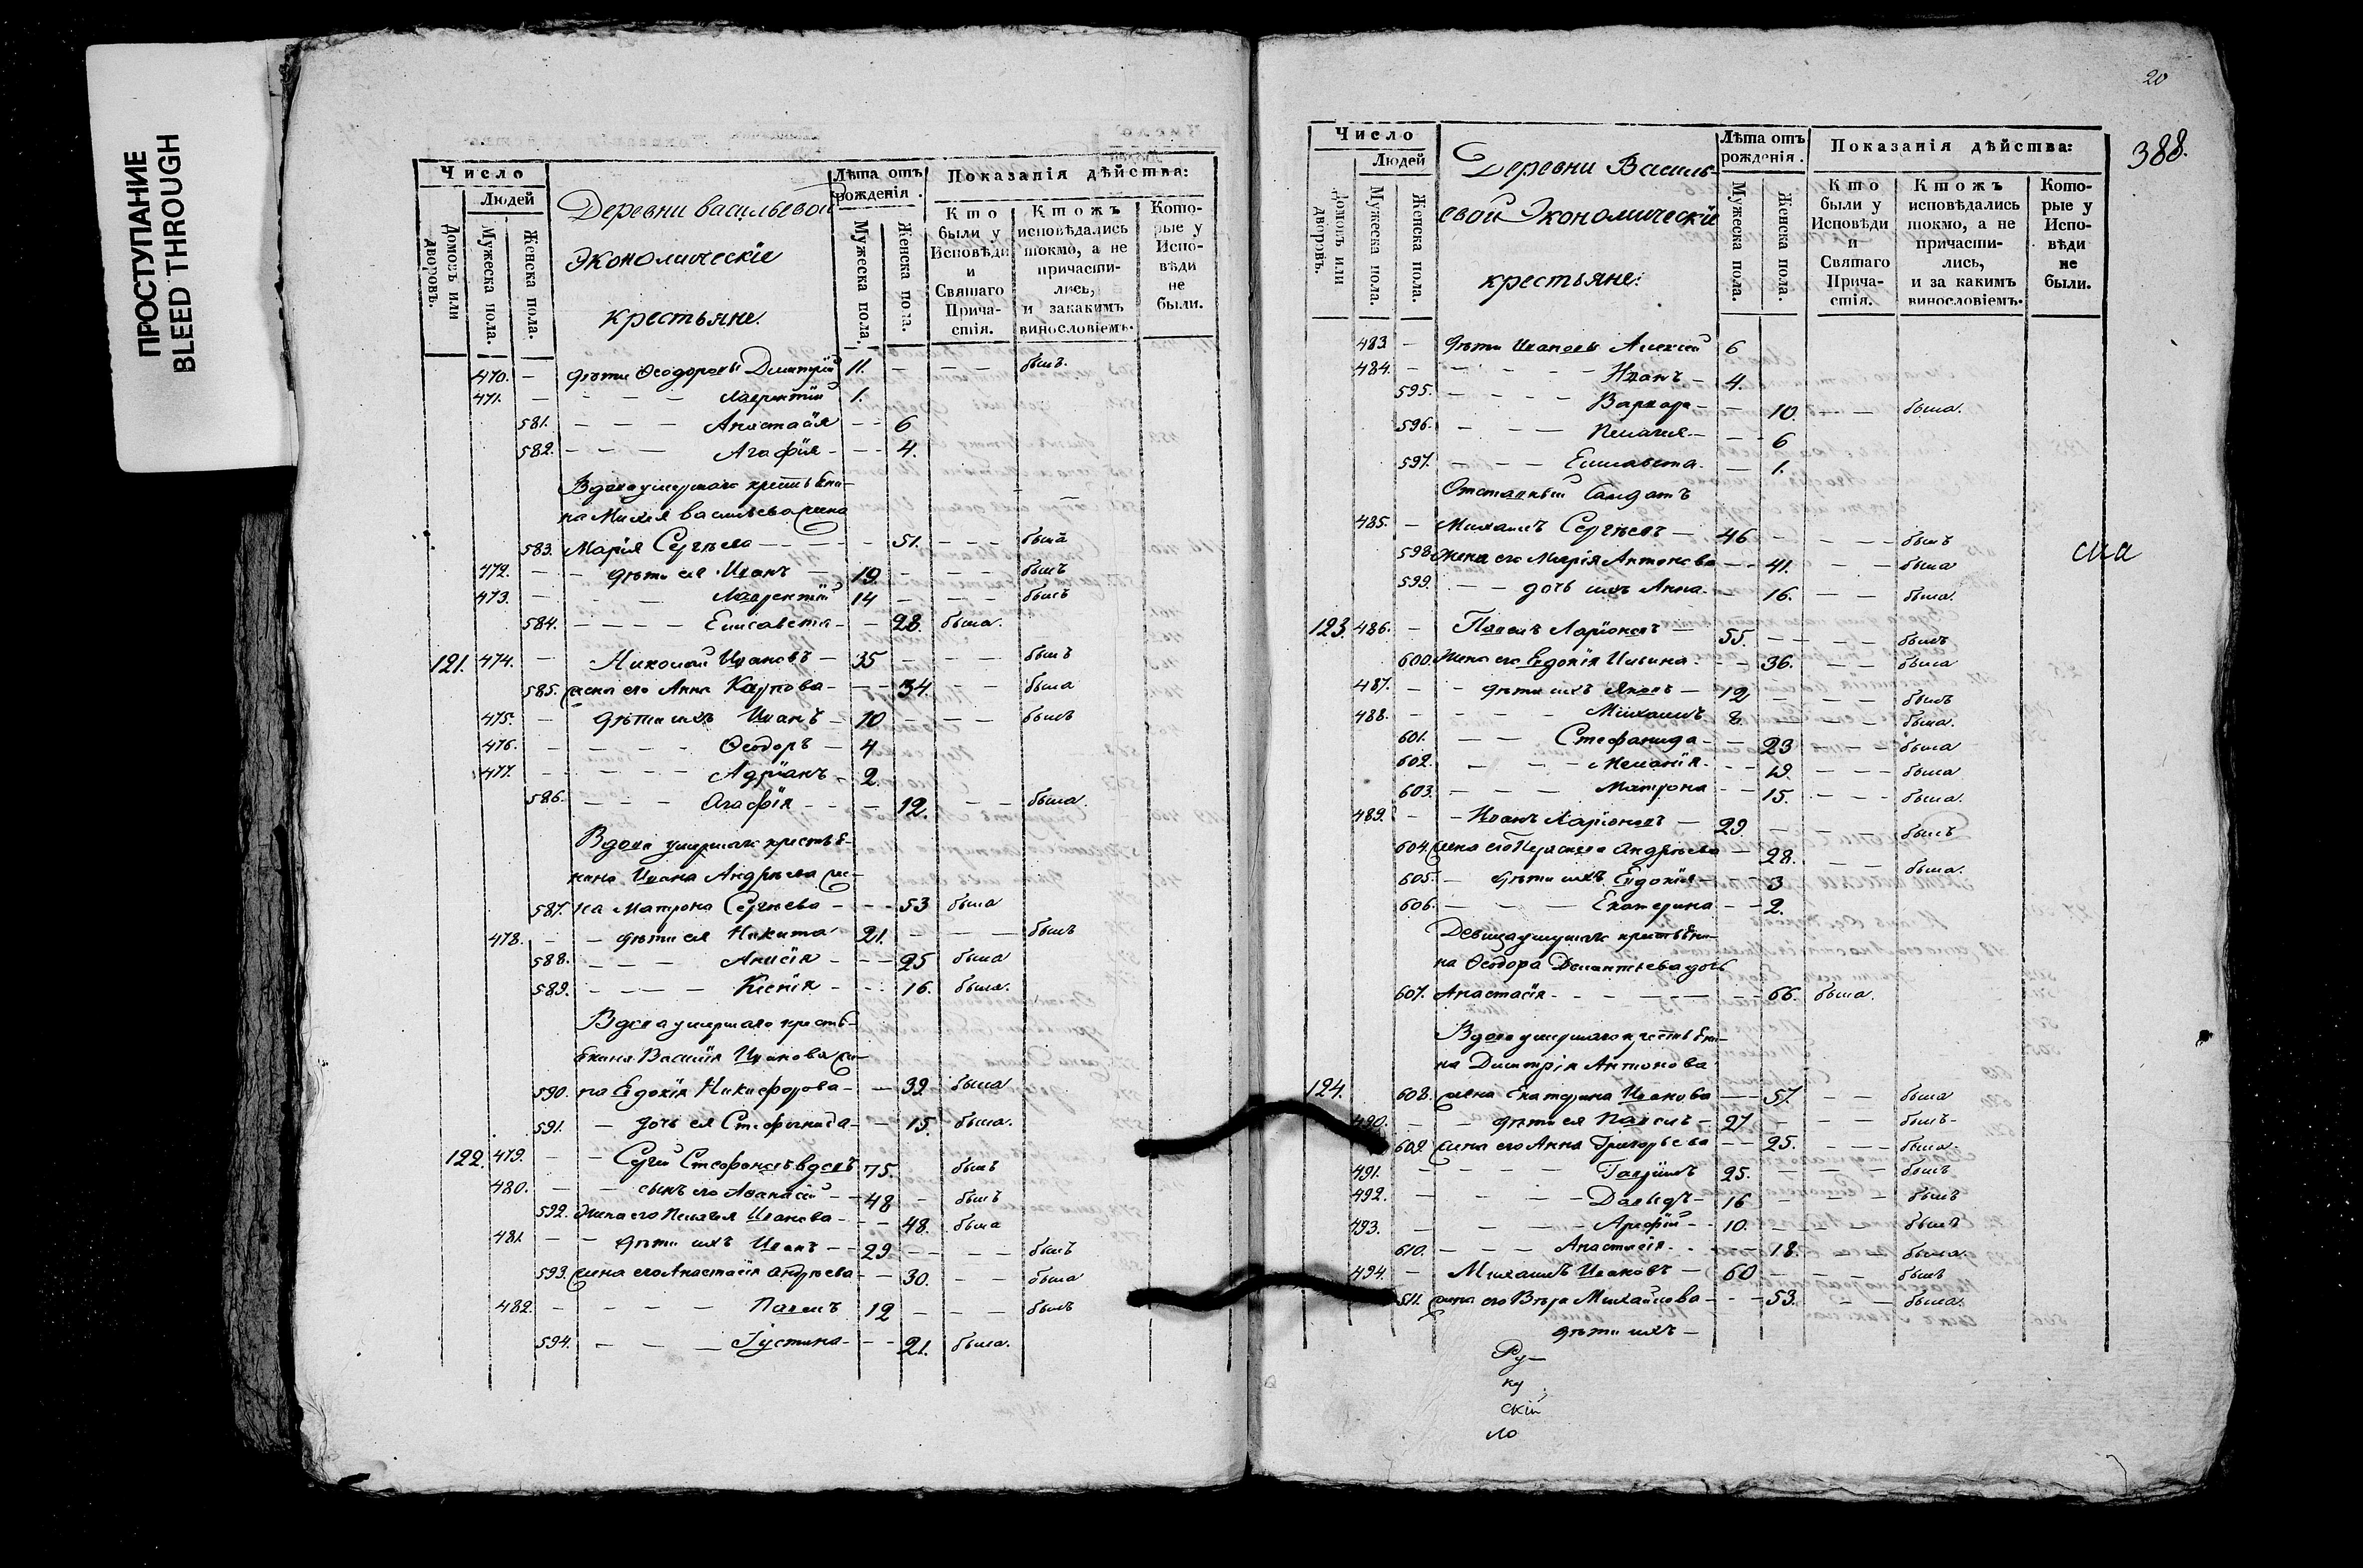 ПРОСТУПАНИЕ
BLEED THROUGH
Число
Людей
Домовъ или дворовъ.
Мужеска пола.
Женска пола.
Деревни васильевой
Экономическіе
крестьяне.
Лѣта отъ рожденія.
Мужеска пола.
Женска пола.
Показанія дѣйства:
Кто были у Исповѣди и Святаго Прича-стія.
Ктожъ исповѣдались токмо, а не причасти-лись, и закакимъ винословіемъ.
Кото-рые у Испо-вѣди не были.
470. — дѣти Ѳеодоровы Димитрій 11. — — — былъ.
471. — — — — Лаврентій 1.
581. — — — Анастасія — — 6
582. — — — Агафія — — 4.
Вдова умершаго крестьяни-
на васильева жена
583. Марія Сергѣева — — — 51. — — — была
472. — — дѣти ея Иванъ — 19. — — — былъ
473. — — — Лаврентій 14 — — — былъ
584. — — — — Елисавета — — 28. была.
121. 474. — Николай Ивановъ — 35 — — — былъ
585. жена его Анна Карпова — — 34. — — была
475. — дѣти ихъ Иванъ — 10 — — — былъ
476. — — — — Ѳеодоръ — 4
477. — — — — Адріанъ — 2.
586. — — — Агафія — — — 12. — — была.
Вдова умершаго крестья-
нина Ивана Андрѣева же-
587. на Матрона Сергѣева — — — 53 была
478. — — дѣти ея Никита 21. — — — былъ
588. — — — Анисія — — — 25 была
589. — — — — Ксенія — — — 16. была.
Вдова умершаго кресть-
янина Василія Иванова же-
590. на Евдокія Никифорова — — 39. была
591. — дочь ея Стефанида — — 15. была.
122. 479. — — Стефановъ вдовъ 75. былъ
480. — — сынъ его Аѳанасій — 48 — былъ
592. Жена его Пелагія Иванова — — — 48. была
481. — — дѣти ихъ Иванъ — — 29 — — — былъ
593. жена его Анастасія андрѣева — — 30. — — была
482. — — — — — Павелъ 12 — — — былъ
594. — — — — Іустина — — — 21. была.
20
388.
Число
Людей
Домовъ или дворовъ.
Мужеска пола.
Женска пола.
Деревни Василь-
евой Экономическіе
крестьяне:
Лѣта отъ рожденія.
Мужеска пола.
Женска пола.
Показанія дѣйства:
Кто были у Исповѣди и Святаго Прича-стія.
Ктожъ исповѣдались токмо, а не причасти-лись, и за какимъ винословіемъ.
Кото-рые у Испо-вѣди не были.
483. — дѣти Ивановы Алексей 6
484. — — — — — Иванъ — 4.
595. — — — — Варвара — — 10. — — была.
596. — — — Пелагія — — — 6
597. — — — Елисавета. — 1.
Отставный Салдатъ
485. — Михаилъ Сергѣевъ — 46 — — — — былъ
598. Жена его Марія Антонова — — 41. — — была
599. — — дочь ихъ Анна. — 16. — — была.
123. 486. — Павелъ Ларіоновъ — 55. — — — — былъ
600. Жена его Евдокія Ильина. — — 36. — — была
487. — — дѣти ихъ Яковъ — 12 — — — былъ
488. — — — — — Михаилъ 8. — — — была.
601. — — Стефанида — — 23 — — — была
602. — — — Меланія — — — 19. — — — была
603. — — — Матрона — — 15. — — — была.
489. — — Иванъ Ларіоновъ — 29. — — — былъ
604. жена его Андрѣева — 28. — — была.
605. — дѣти ихъ Евдокія — — 3
606. — — — Екатерина — — 2.
Девица умершаго крестьяни-
на Ѳеодора Дементьева дочь
607. Анастасія — — — — — — 66. была.
Вдова умершаго крестьяни-
на Димитрія Антонова
124. 608. жена Екатерина Иванова — — 57. — — была
490. — — дѣти ея Павелъ — 27 — — — былъ
609. жена его Анна Григорьева — — 25. — — была
491. — — — — Гавріилъ 25. — — — былъ
492. — — — — Давидъ — 16 — — — былъ
493. — — — — Арефій — 10. — — — былъ
610. — — — Анастасія. — — 18. — — была.
494. — Михаилъ Ивановъ — 60 — — — былъ
511. жена его Вѣра Михайлова — — — 53. — — была.
дѣти ихъ —
Ру—
ку
скій
ло